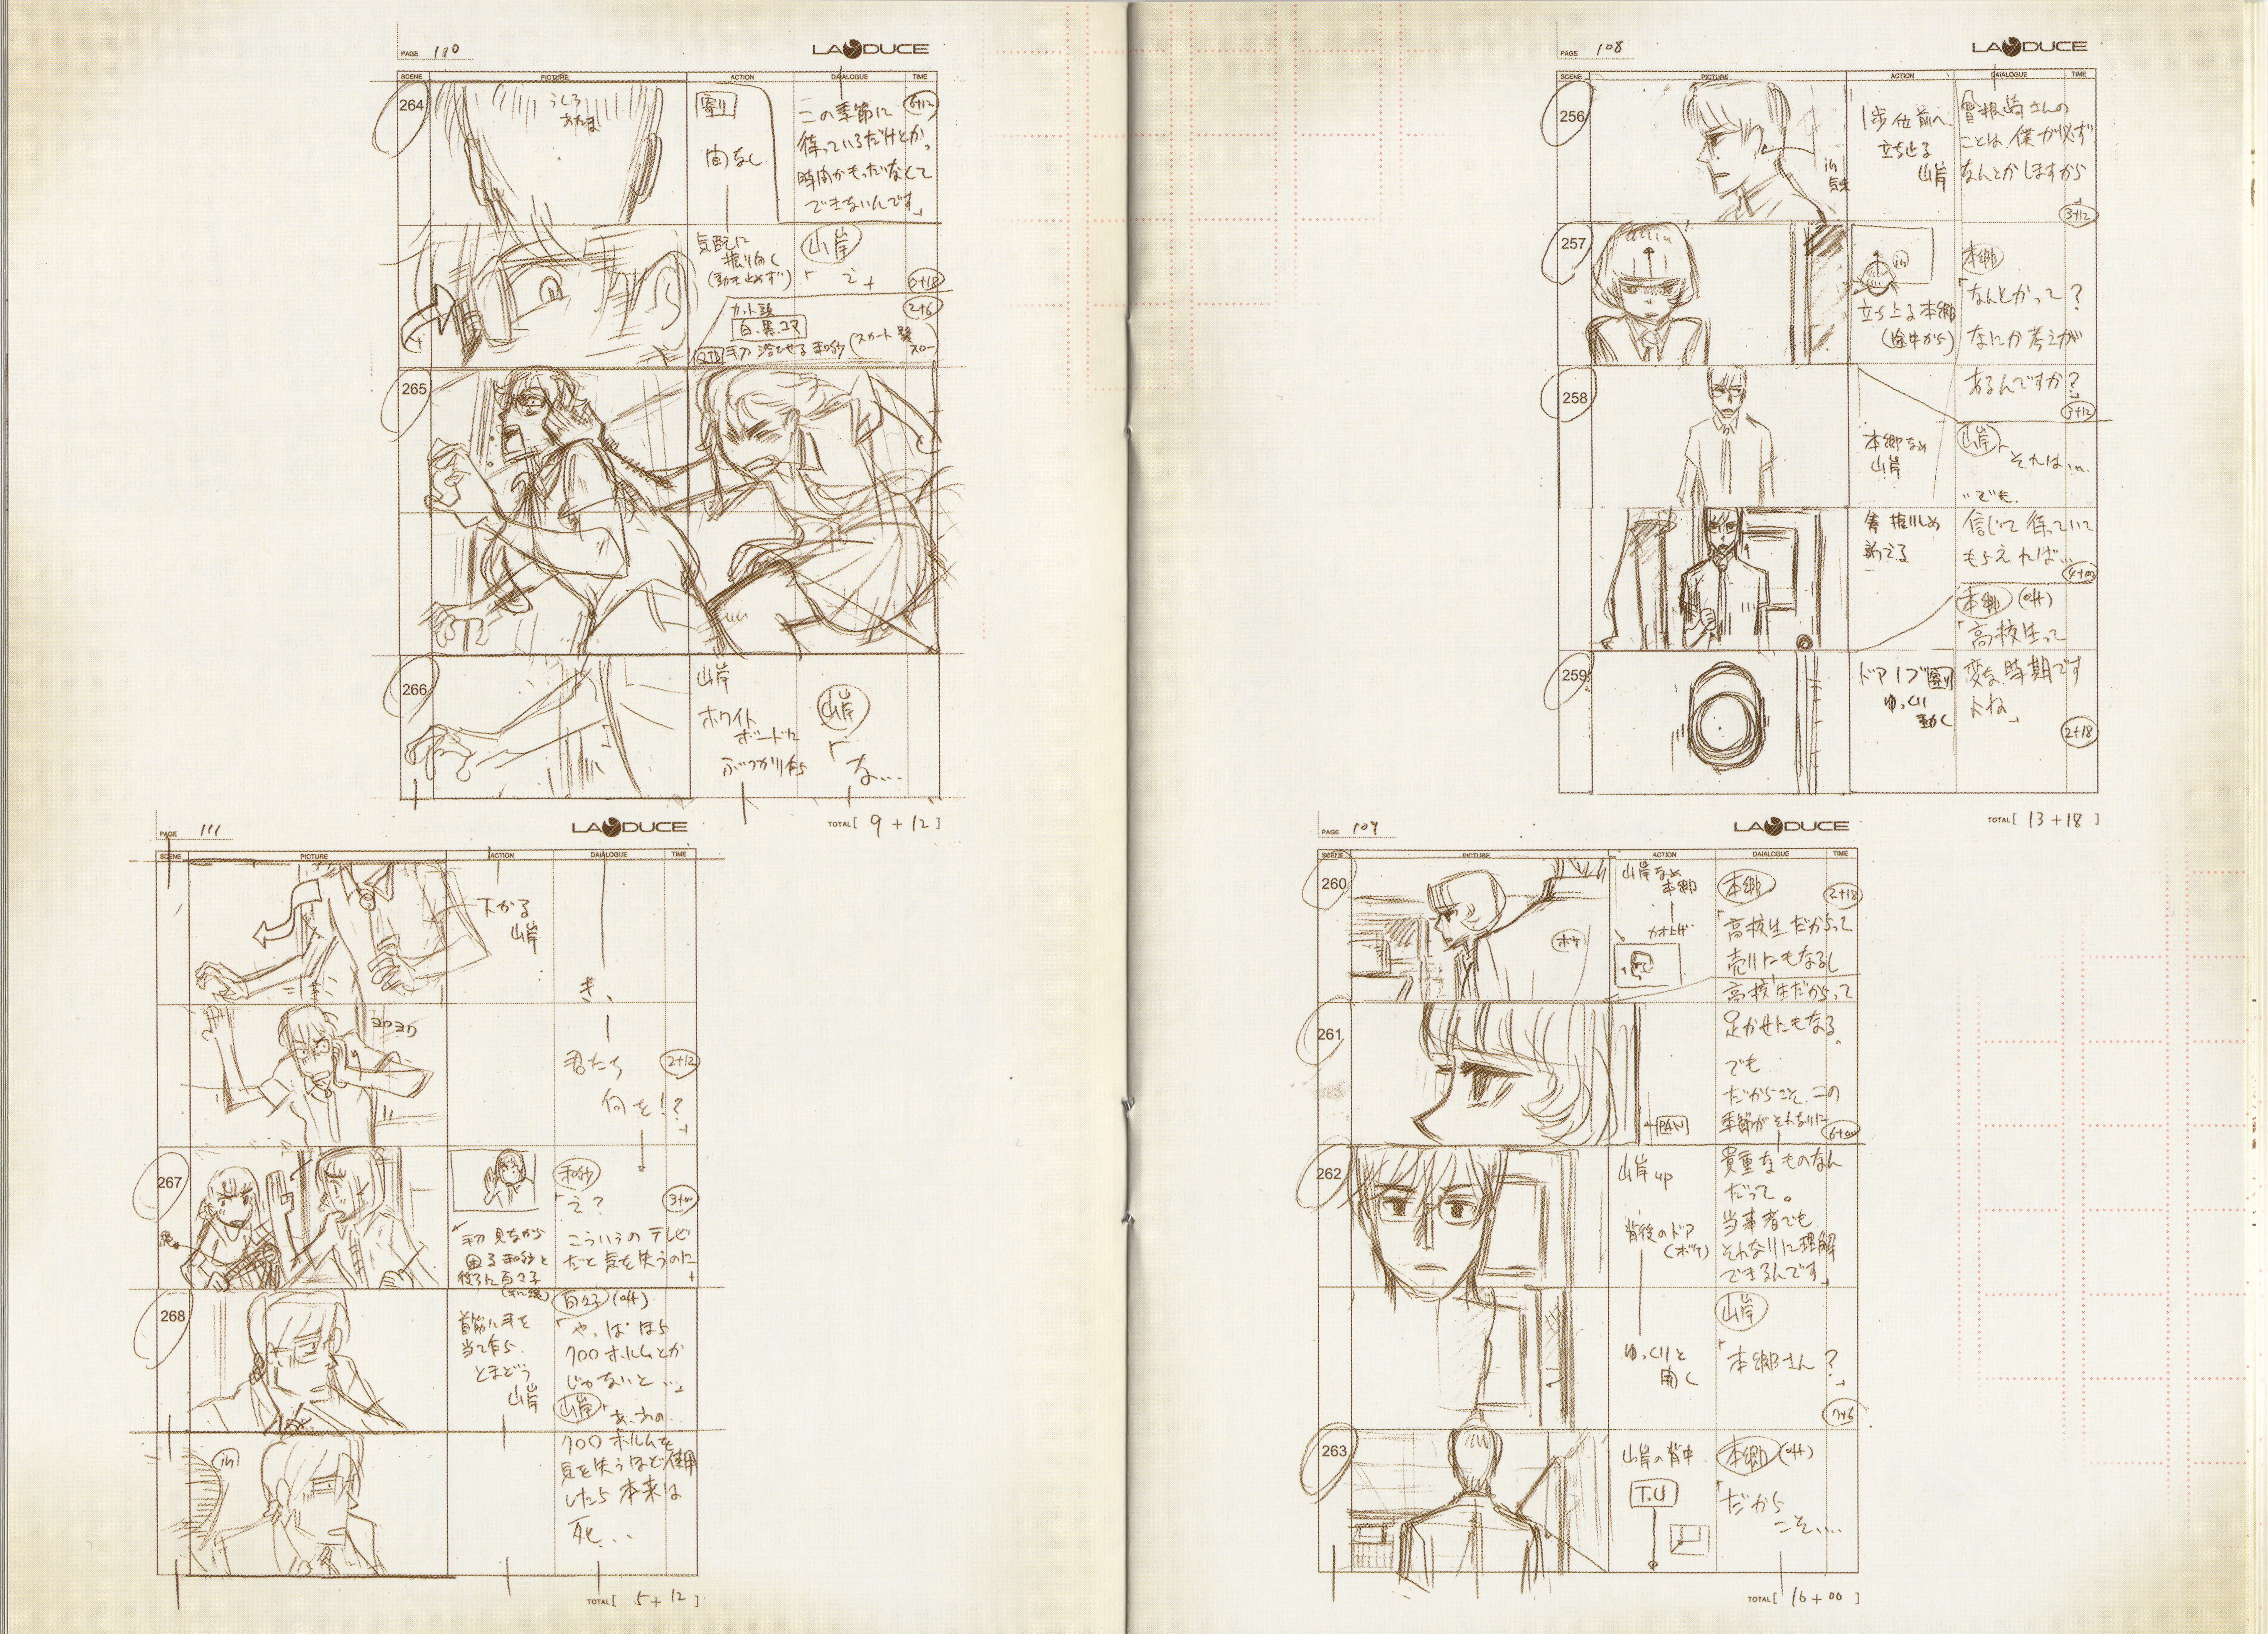 PAGE 108
LADUCE
SCENE PICTURE ACTION DAIALOGUE TIME
256
in
1歩位前へ
立ち止る
山岸
曽根崎さんの
ことは、僕が必ず
なんとかしますから
3+12
257
in
立ち上る本郷
(途中から)
本郷
「なんとかって?
なにか考えが
あるんですか?」
3+12
258
本郷なめ
山岸
山岸
「それは…
…でも、
信じて待っていて
もらえれば…
4+00
本郷 (off)
「高校生って
259
ドアノブ
ゆっくり
動く
変な時期です
よね」
2+18
TOTAL [ 13+18 ]
PAGE 109
LADUCE
SCENE PICTURE ACTION DAIALOGUE TIME
260
ボケ
山岸なめ
本郷
本郷
2+18
「高校生だからって
売りにもなるし
高校生だからって
261
PAN
足かせにもなる。
でも
だからこそ、この
季節がそれなりに
6+00
262
山岸up
背後のドア
(ボケ)
貴重なものなん
だって。
当事者でも
それなりに理解
できるんです」
ゆっくりと
開く
山岸
「本郷さん?」
7+6
263
山岸の背中
T.U
本郷 (off)
「だから
こそ…
TOTAL [ 16+00 ]
PAGE 110
LADUCE
SCENE PICTURE ACTION DAIALOGUE TIME
264
うしろ
あたま
間なし
この季節に
待っているだけとか、
時間がもったいなくて
できないんです」
6+12
気配に
振り向く
(動き止めず)
山岸
「え」
0+18
265
カット頭
白、黒、コマ
手刀 浴びせる 和紗 (スカート 髪 スロー
2+6
266
山岸
ホワイト
ボードに
ぶつかり乍ら
山岸
「な…
TOTAL [ 9+12 ]
PAGE 111
LADUCE
SCENE PICTURE ACTION DAIALOGUE TIME
下がる
山岸
き、
ヨロヨロ
君たち
何を!?」
2+12
267
手刀見ながら
困る和紗と
後ろに百々子
和紗
「え?
こういうのテレビ
だと気を失うのに」
3+00
268
首筋に手を
当て乍ら
とまどう
山岸
百々子 (off)
「やっぱほら
クロロホルムとか
じゃないと…」
山岸
「あ、あの…
in
クロロホルムを
気を失うほど使用
したら本来は
死…
TOTAL [ 5+12 ]